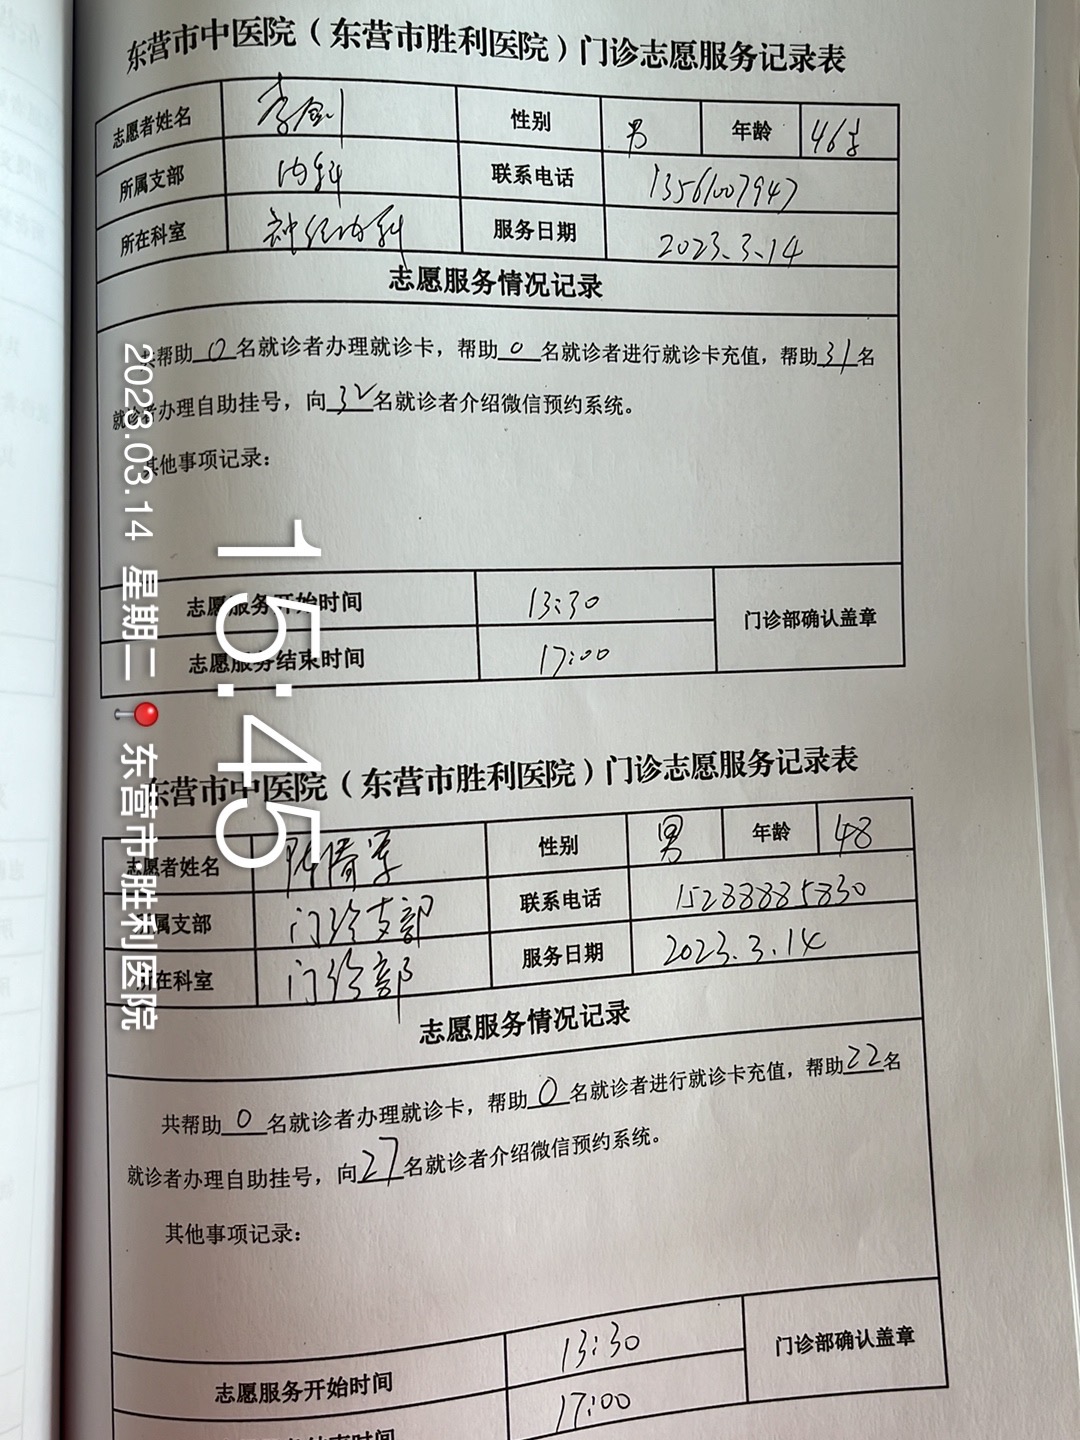 东营市中医院（东营市胜利医院）门诊志愿服务记录表
志愿者姓名 李剑 性别 男 年龄 46岁
所属支部 内科 联系电话 13561007947
所在科室 神经内科 服务日期 2023.3.14
志愿服务情况记录
共帮助0名就诊者办理就诊卡，帮助0名就诊者进行就诊卡充值，帮助31名
就诊者办理自助挂号，向32名就诊者介绍微信预约系统。
其他事项记录：
志愿服务开始时间 13:30 门诊部确认盖章
志愿服务结束时间 17:00
东营市中医院（东营市胜利医院）门诊志愿服务记录表
志愿者姓名 性别 男 年龄 48
所属支部 门诊支部 联系电话 15288885830
所在科室 门诊部 服务日期 2023.3.14
志愿服务情况记录
共帮助0名就诊者办理就诊卡，帮助0名就诊者进行就诊卡充值，帮助22名
就诊者办理自助挂号，向27名就诊者介绍微信预约系统。
其他事项记录：
志愿服务开始时间 13:30 门诊部确认盖章
结束时间 17:00
15:45
2023.03.14 星期二 东营市胜利医院